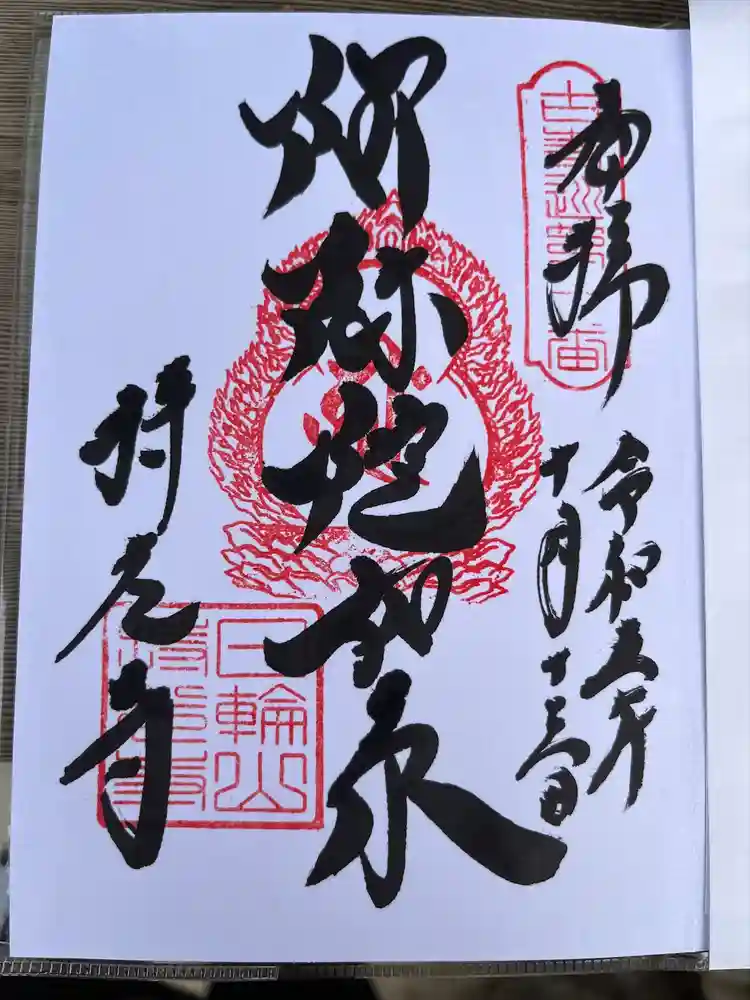 奉拝
令和五年
十月十三日
阿弥陀如来
持光寺
日輪山
持光寺